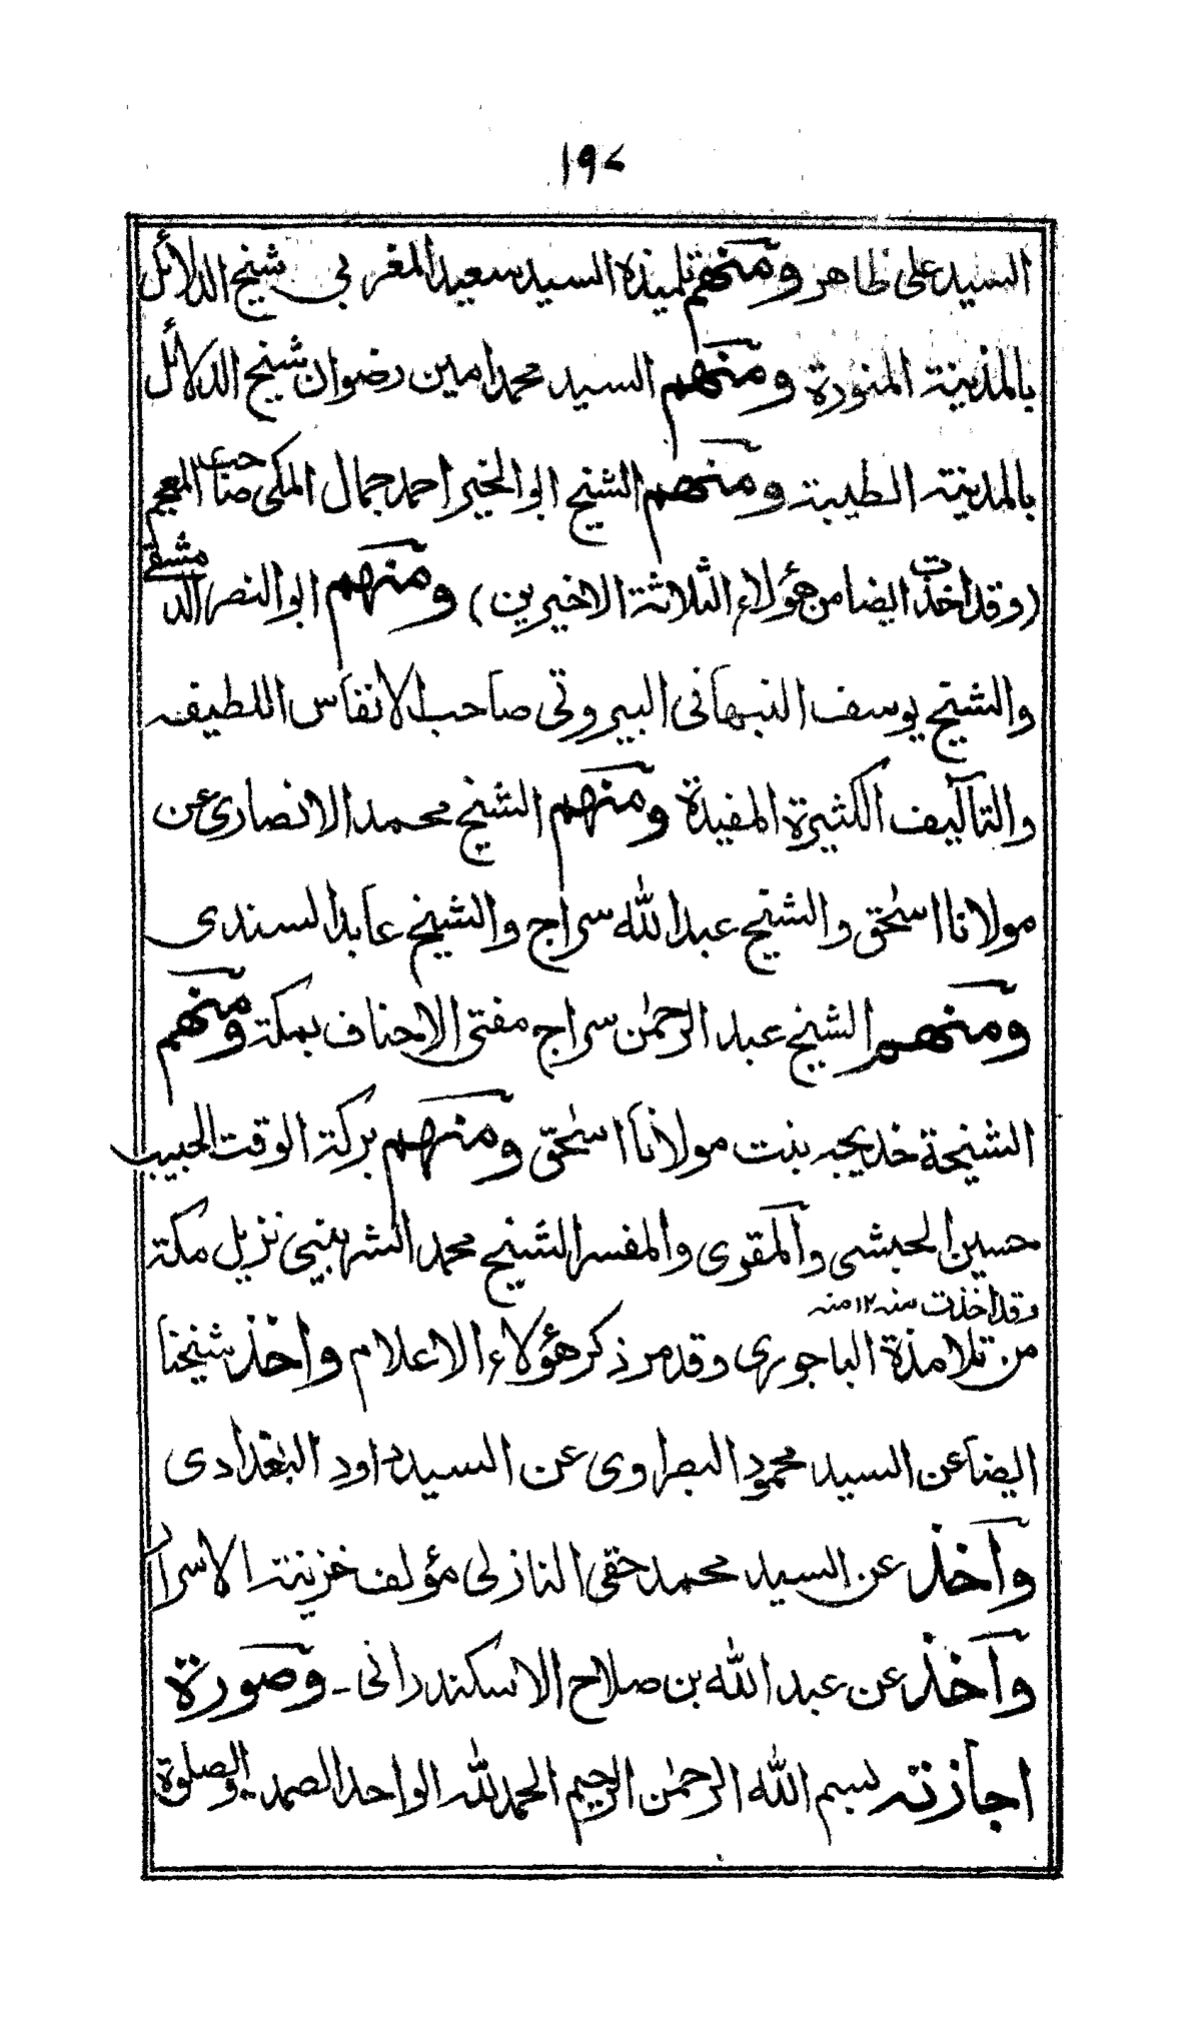 ١٩٧
السيد على ظاهر ومنهم تلميذه السيد سعيد المغربي شيخ الدلائل
بالمدينة المنورة ومنهم السيد محمد امين رضوان شيخ الدلائل
بالمدينة الطيبة ومنهم الشيخ ابو الخير احمد جمال المكى صاحب المعجم
(وقد اخذت ايضا من هؤلاء الثلاثة الاخيرين) ومنهم ابو النصر الدمشقى
والشيخ يوسف النبهانى البيروتى صاحب الانفاس اللطيفه
والتآليف الكثيرة المفيدة ومنهم الشيخ محمد الانصارى عن
مولانا اسحٰق والشيخ عبد الله سراج والشيخ عابد السندى
ومنهم الشيخ عبد الرحمٰن سراج مفتى الاحناف بمكة ومنهم
الشيخة خديجه بنت مولانا اسحٰق ومنهم بركة الوقت الحبيب
حسين الحبشى والمقرى والمفسر الشيخ محمد الشربينى نزيل مكة
وقد اخذت منه ١٢ منه
من تلامذة الباجورى وقد مر ذكر هؤلاء الاعلام واخذ شيخنا
ايضا عن السيد محمود البصراوى عن السيد داود البغدادى
واخذ عن السيد محمد حقى النازلى مؤلف خزينة الاسرار
واخذ عن عبد الله بن صلاح الاسكندرانى ـ وصورة
اجازته بسم الله الرحمٰن الرحيم الحمد لله الواحد الصمد ـ والصلوة